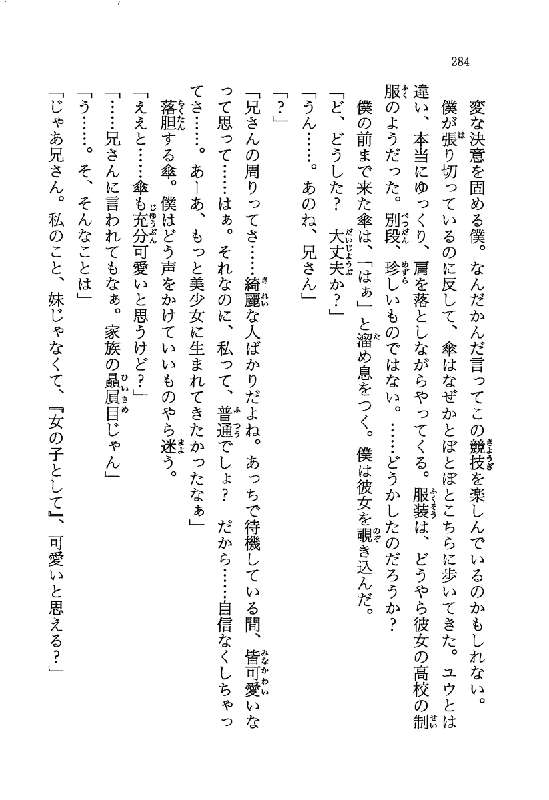 284
変な決意を固める僕。なんだかんだ言ってこの競技を楽しんでいるのかもしれない。
僕が張り切っているのに反して、傘はなぜかとぼとぼとこちらに歩いてきた。ユウとは
違い、本当にゆっくり、肩を落としながらやってくる。服装は、どうやら彼女の高校の制
服のようだった。別段、珍しいものではない。……どうかしたのだろうか？
僕の前まで来た傘は、「はぁ」と溜め息をつく。僕は彼女を覗き込んだ。
「ど、どうした？　大丈夫か？」
「うん……。あのね、兄さん」
「？」
「兄さんの周りってさ……綺麗な人ばかりだよね。あっちで待機している間、皆可愛いな
って思って……はぁ。それなのに、私って、普通でしょ？　だから……自信なくしちゃっ
てさ……。あーあ、もっと美少女に生まれてきたかったなぁ」
落胆する傘。僕はどう声をかけていいものやら迷う。
「ええと……傘も充分可愛いと思うけど？」
「……兄さんに言われてもなぁ。家族の贔屓目じゃん」
「う……。そ、そんなことは」
「じゃあ兄さん。私のこと、妹じゃなくて、『女の子として』、可愛いと思える？」